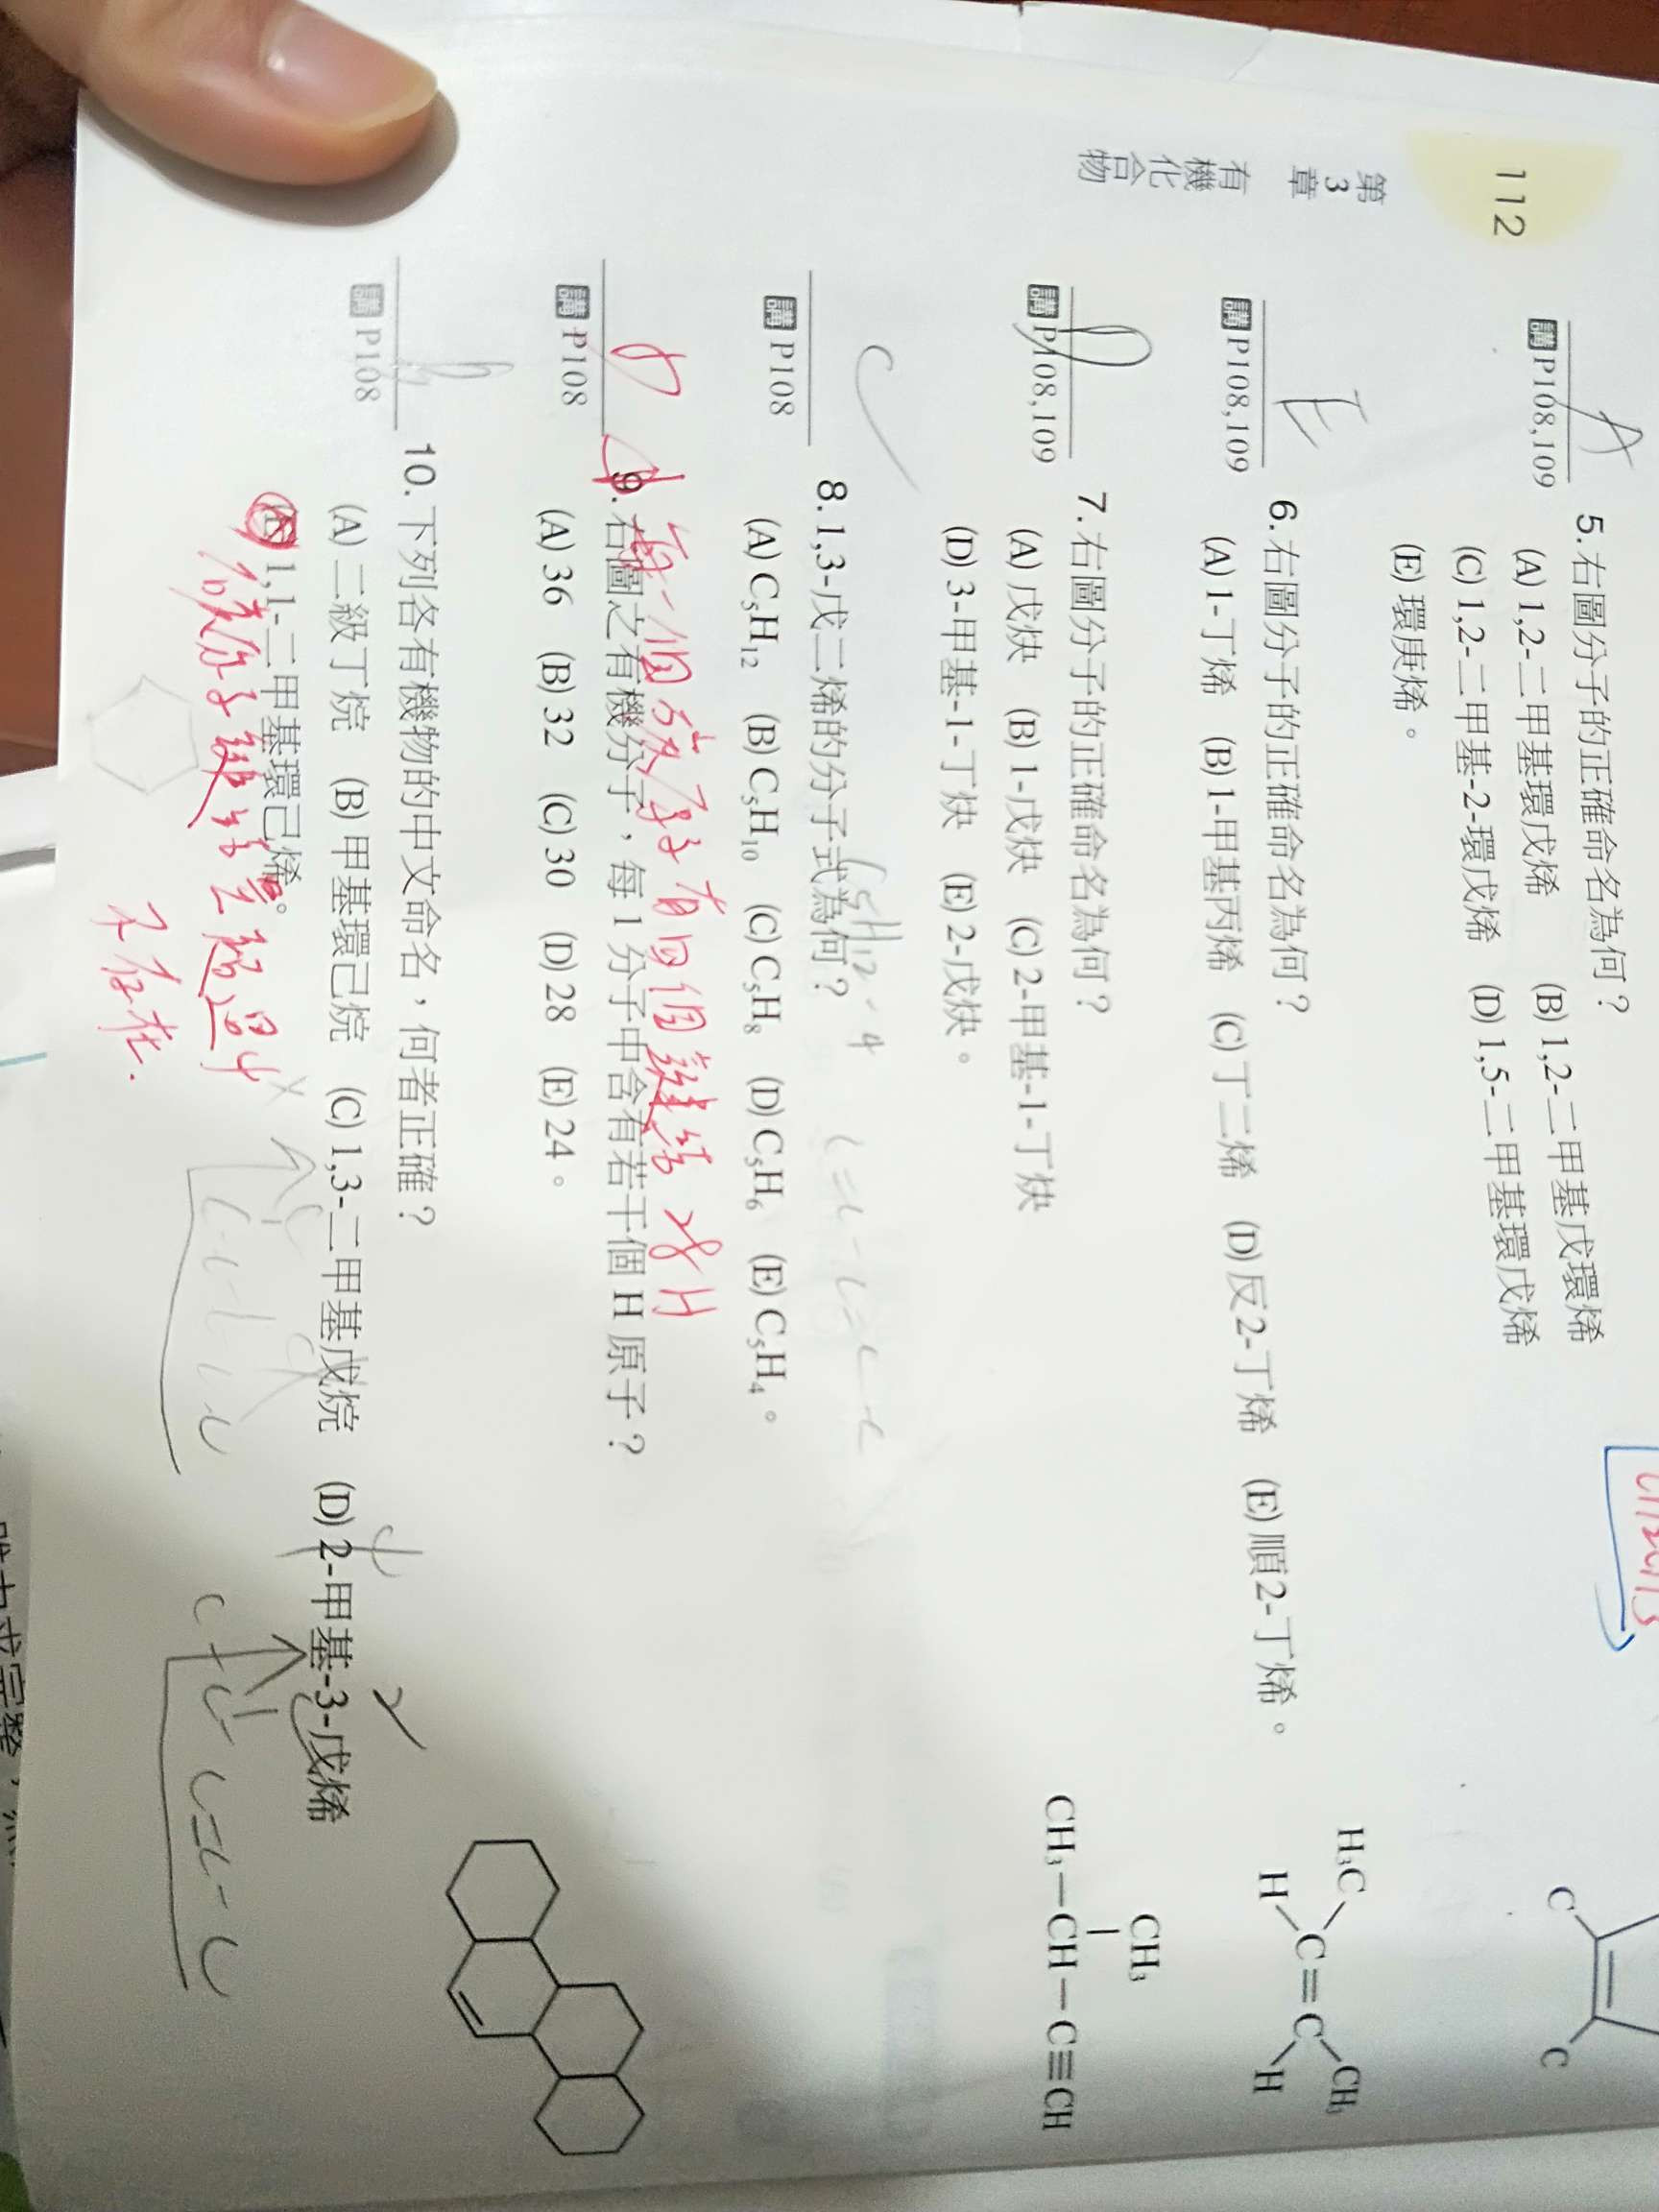 112
第3章 有機化合物
A 5. 右圖分子的正確命名為何？
講 P108,109
(A) 1,2-二甲基環戊烯 (B) 1,2-二甲基戊環烯
(C) 1,2-二甲基-2-環戊烯 (D) 1,5-二甲基環戊烯
(E) 環庚烯。
C C
E 6. 右圖分子的正確命名為何？
講 P108,109
(A) 1-丁烯 (B) 1-甲基丙烯 (C) 丁二烯 (D) 反2-丁烯 (E) 順2-丁烯。
H₃C CH₃
C=C
H H
D 7. 右圖分子的正確命名為何？
講 P108,109
(A) 戊炔 (B) 1-戊炔 (C) 2-甲基-1-丁炔
(D) 3-甲基-1-丁炔 (E) 2-戊炔。
CH₃
CH₃—CH—C≡CH
C₅H₁₂-4 C=C-C=C-C
C 8. 1,3-戊二烯的分子式為何？
講 P108
(A) C₅H₁₂ (B) C₅H₁₀ (C) C₅H₈ (D) C₅H₆ (E) C₅H₄。
每一個碳原子有四個鍵結 28H
D 9. 右圖之有機分子，每 1 分子中含有若干個 H 原子？
講 P108
(A) 36 (B) 32 (C) 30 (D) 28 (E) 24。
10. 下列各有機物的中文命名，何者正確？
講 P108
(A) 二級丁烷 (B) 甲基環己烷 (C) 1,3-二甲基戊烷 (D) 2-甲基-3-戊烯
1,1-二甲基環己烯。
碳原子鍵結會超過4
不存在.